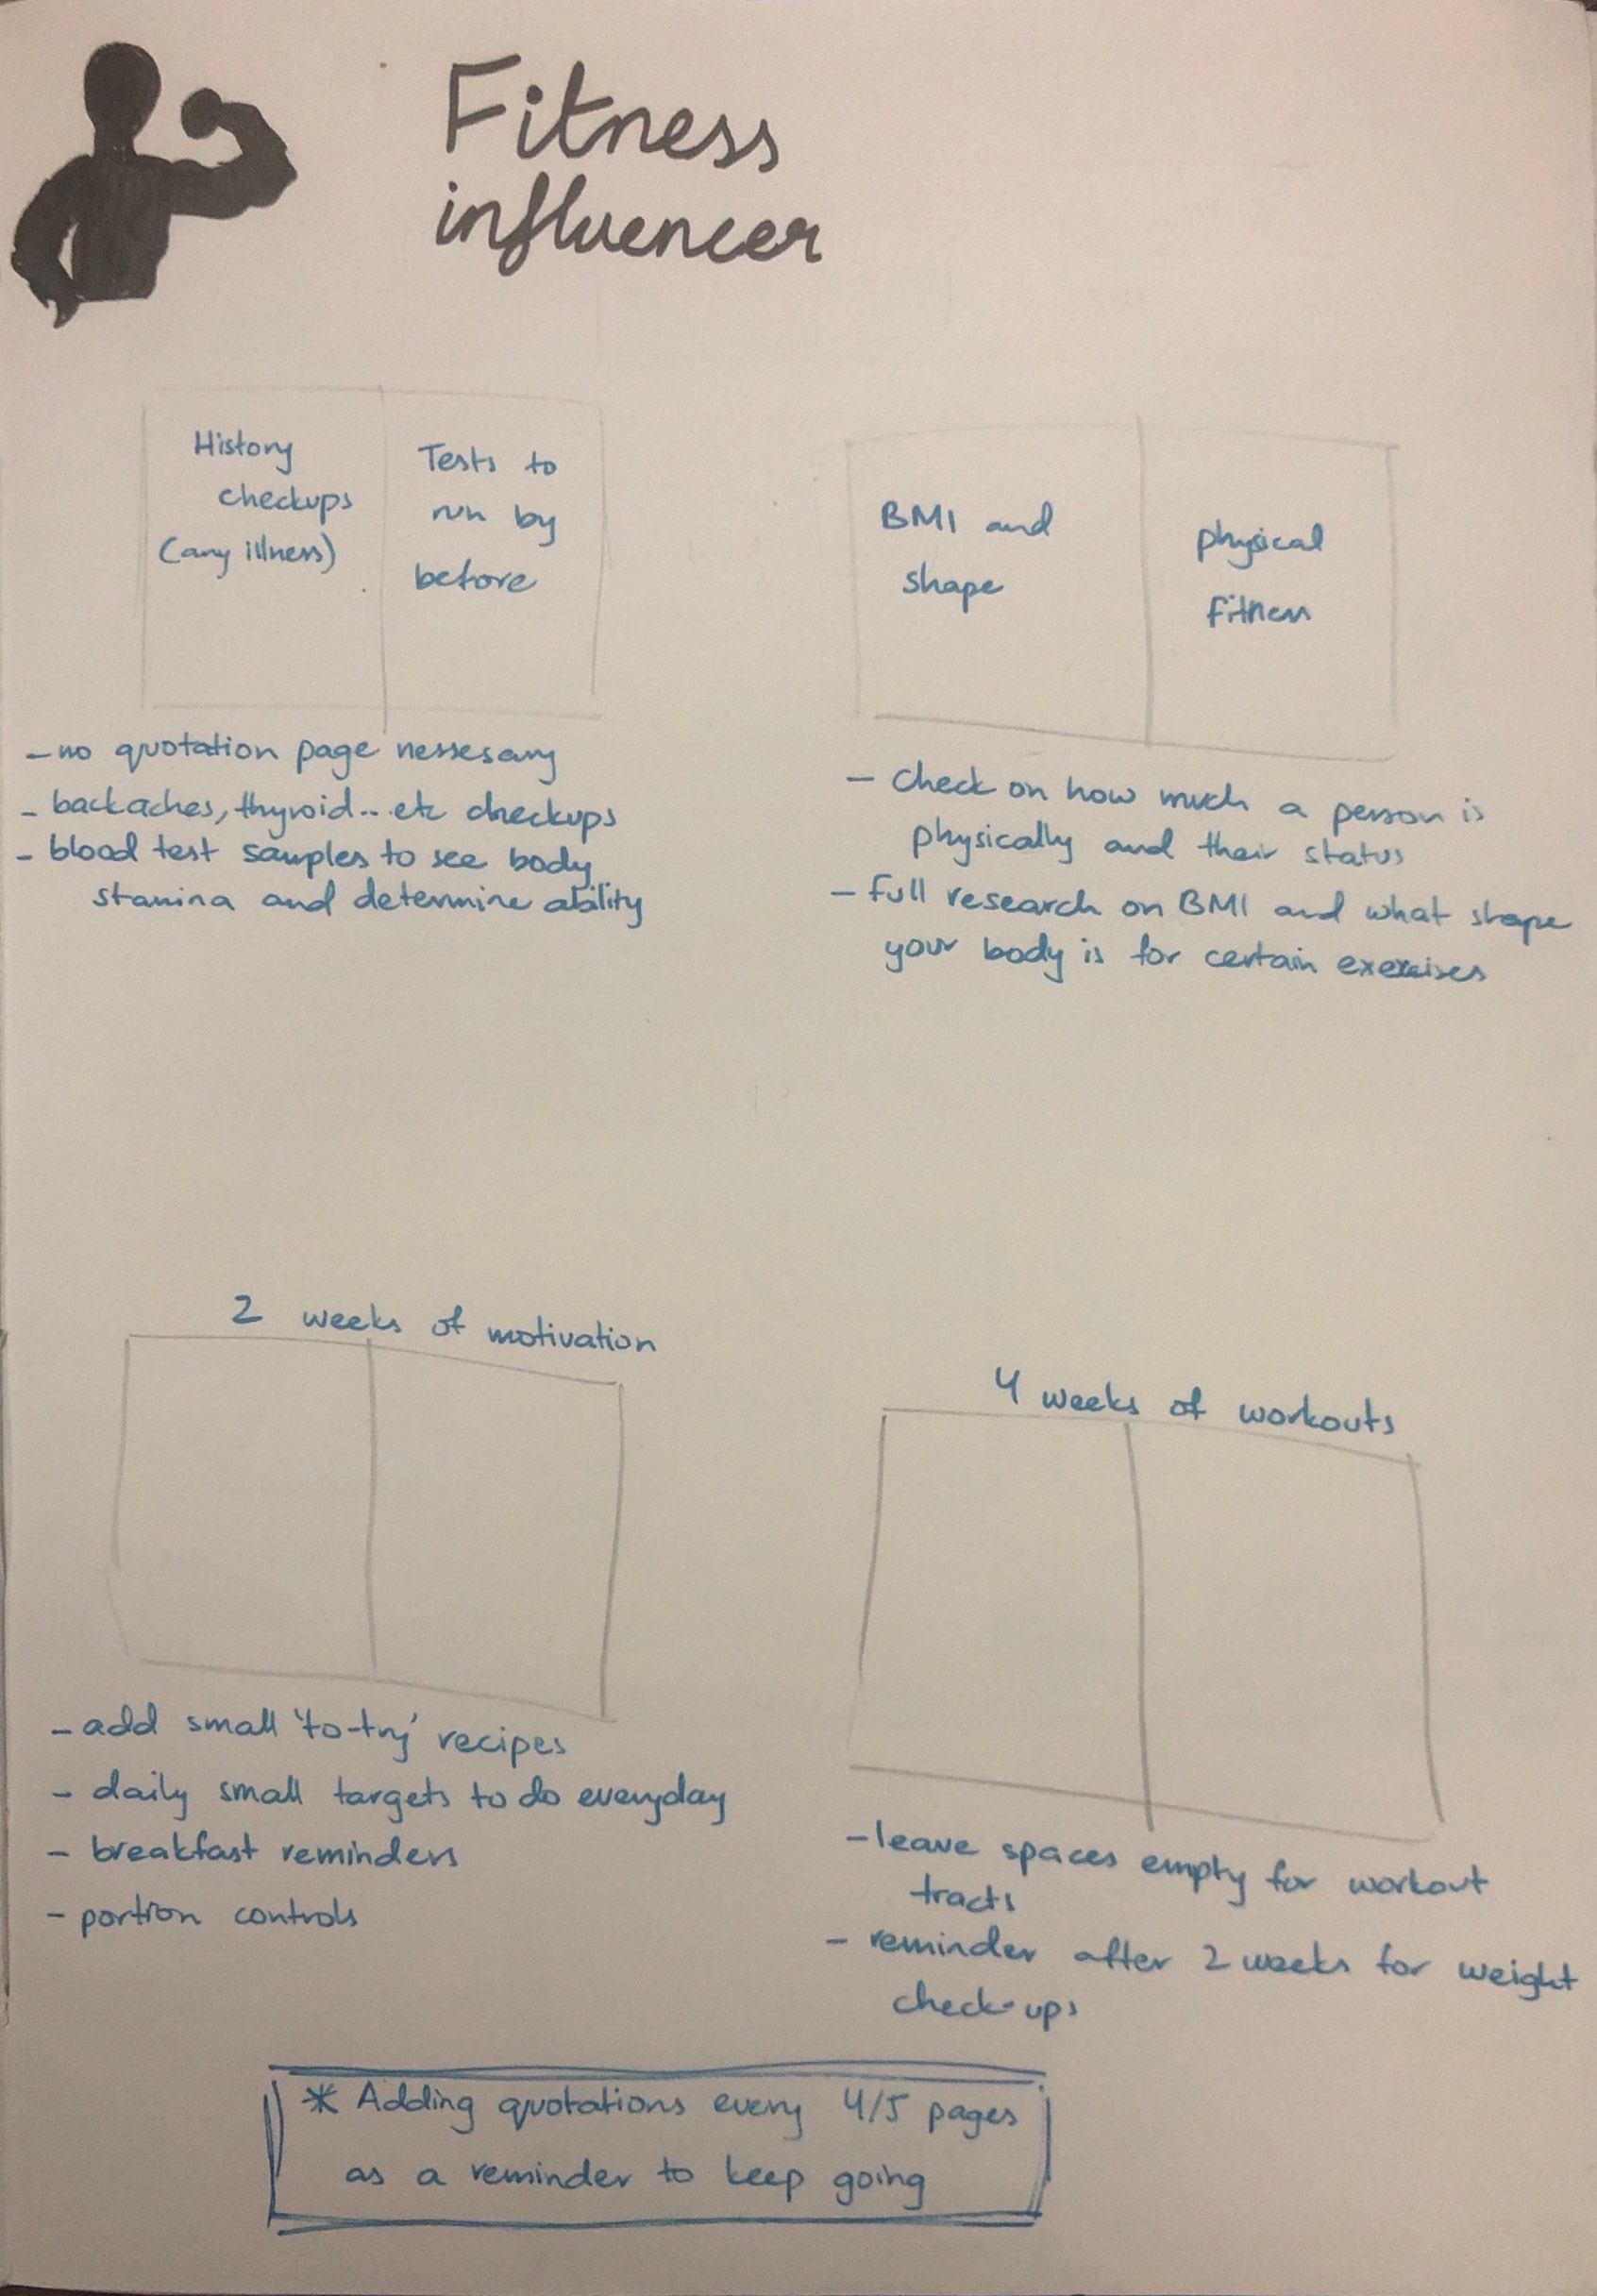 Fitness
influencer
History
checkups
(any illness)
Tests to
run by
before
BMI and
shape
physical
fitness
- no quotation page nessesary
- backaches, thyroid... etc checkups
- blood test samples to see body
stamina and determine ability
- check on how much a person is
physically and their status
- full research on BMI and what shape
your body is for certain exercises
2 weeks of motivation
- add small 'to-try' recipes
- daily small targets to do everyday
- breakfast reminders
- portion controls
4 weeks of workouts
- leave spaces empty for workout
tracts
- reminder after 2 weeks for weight
check-ups
* Adding quotations every 4/5 pages
as a reminder to keep going